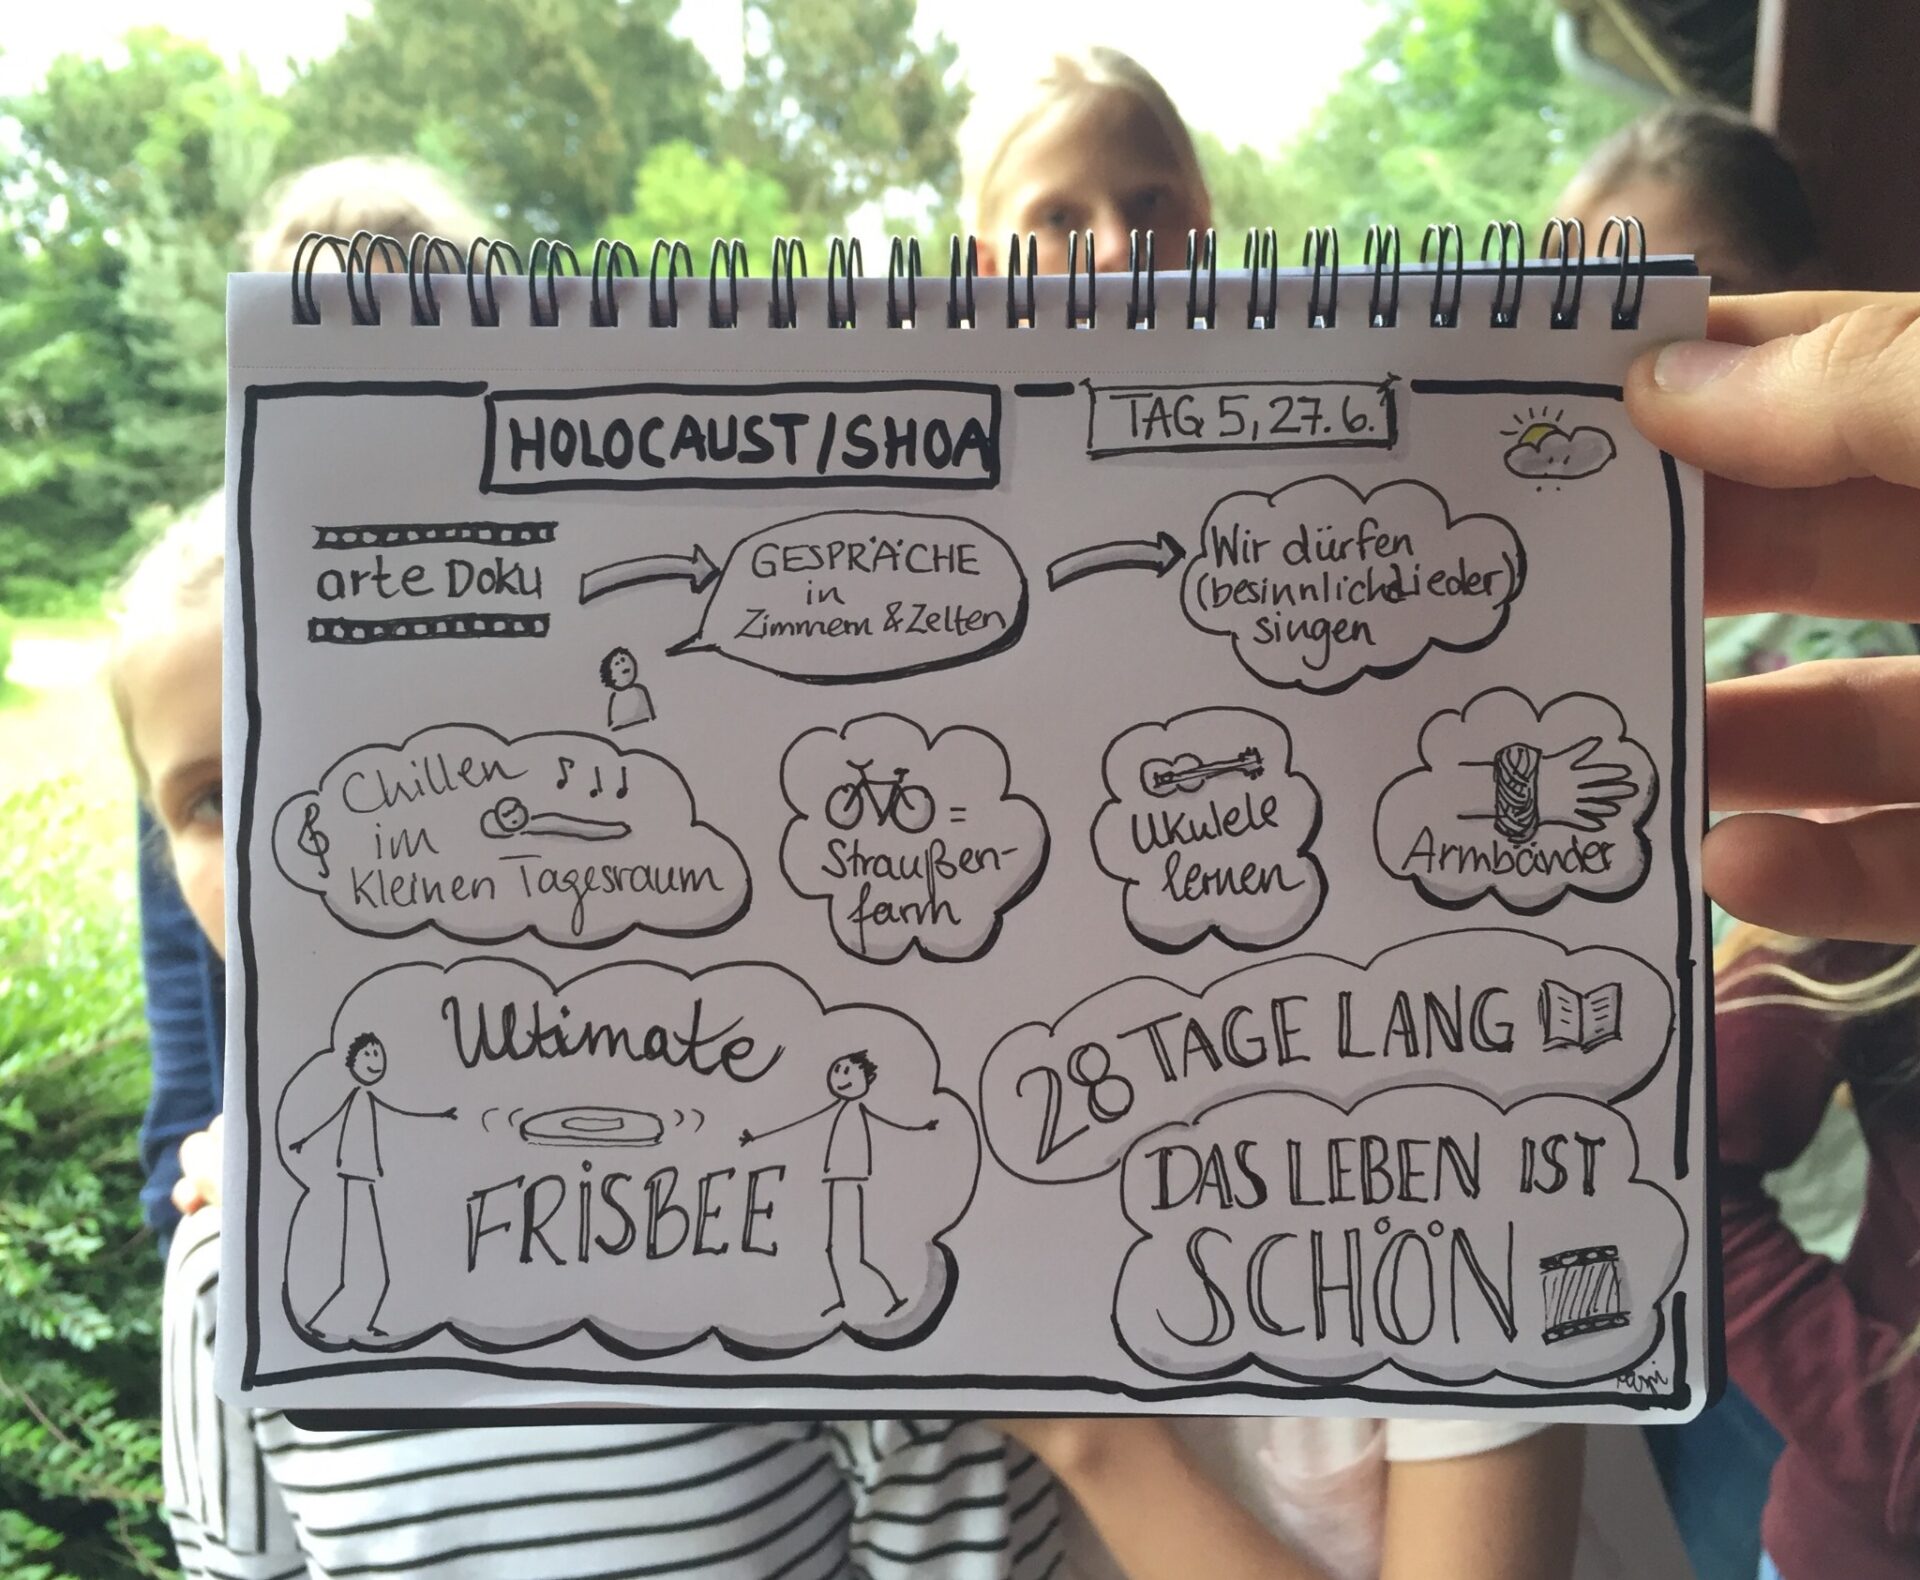 HOLOCAUST/SHOA
TAG 5, 27.6.
arte Doku
GESPRÄCHE
in
Zimmern & Zelten
Wir dürfen
(besinnliche Lieder)
singen
Chillen
im
kleinen Tagesraum
=
Straußen-
farm
Ukulele
lernen
Armbänder
Ultimate
FRISBEE
28 TAGE LANG
DAS LEBEN IST
SCHÖN